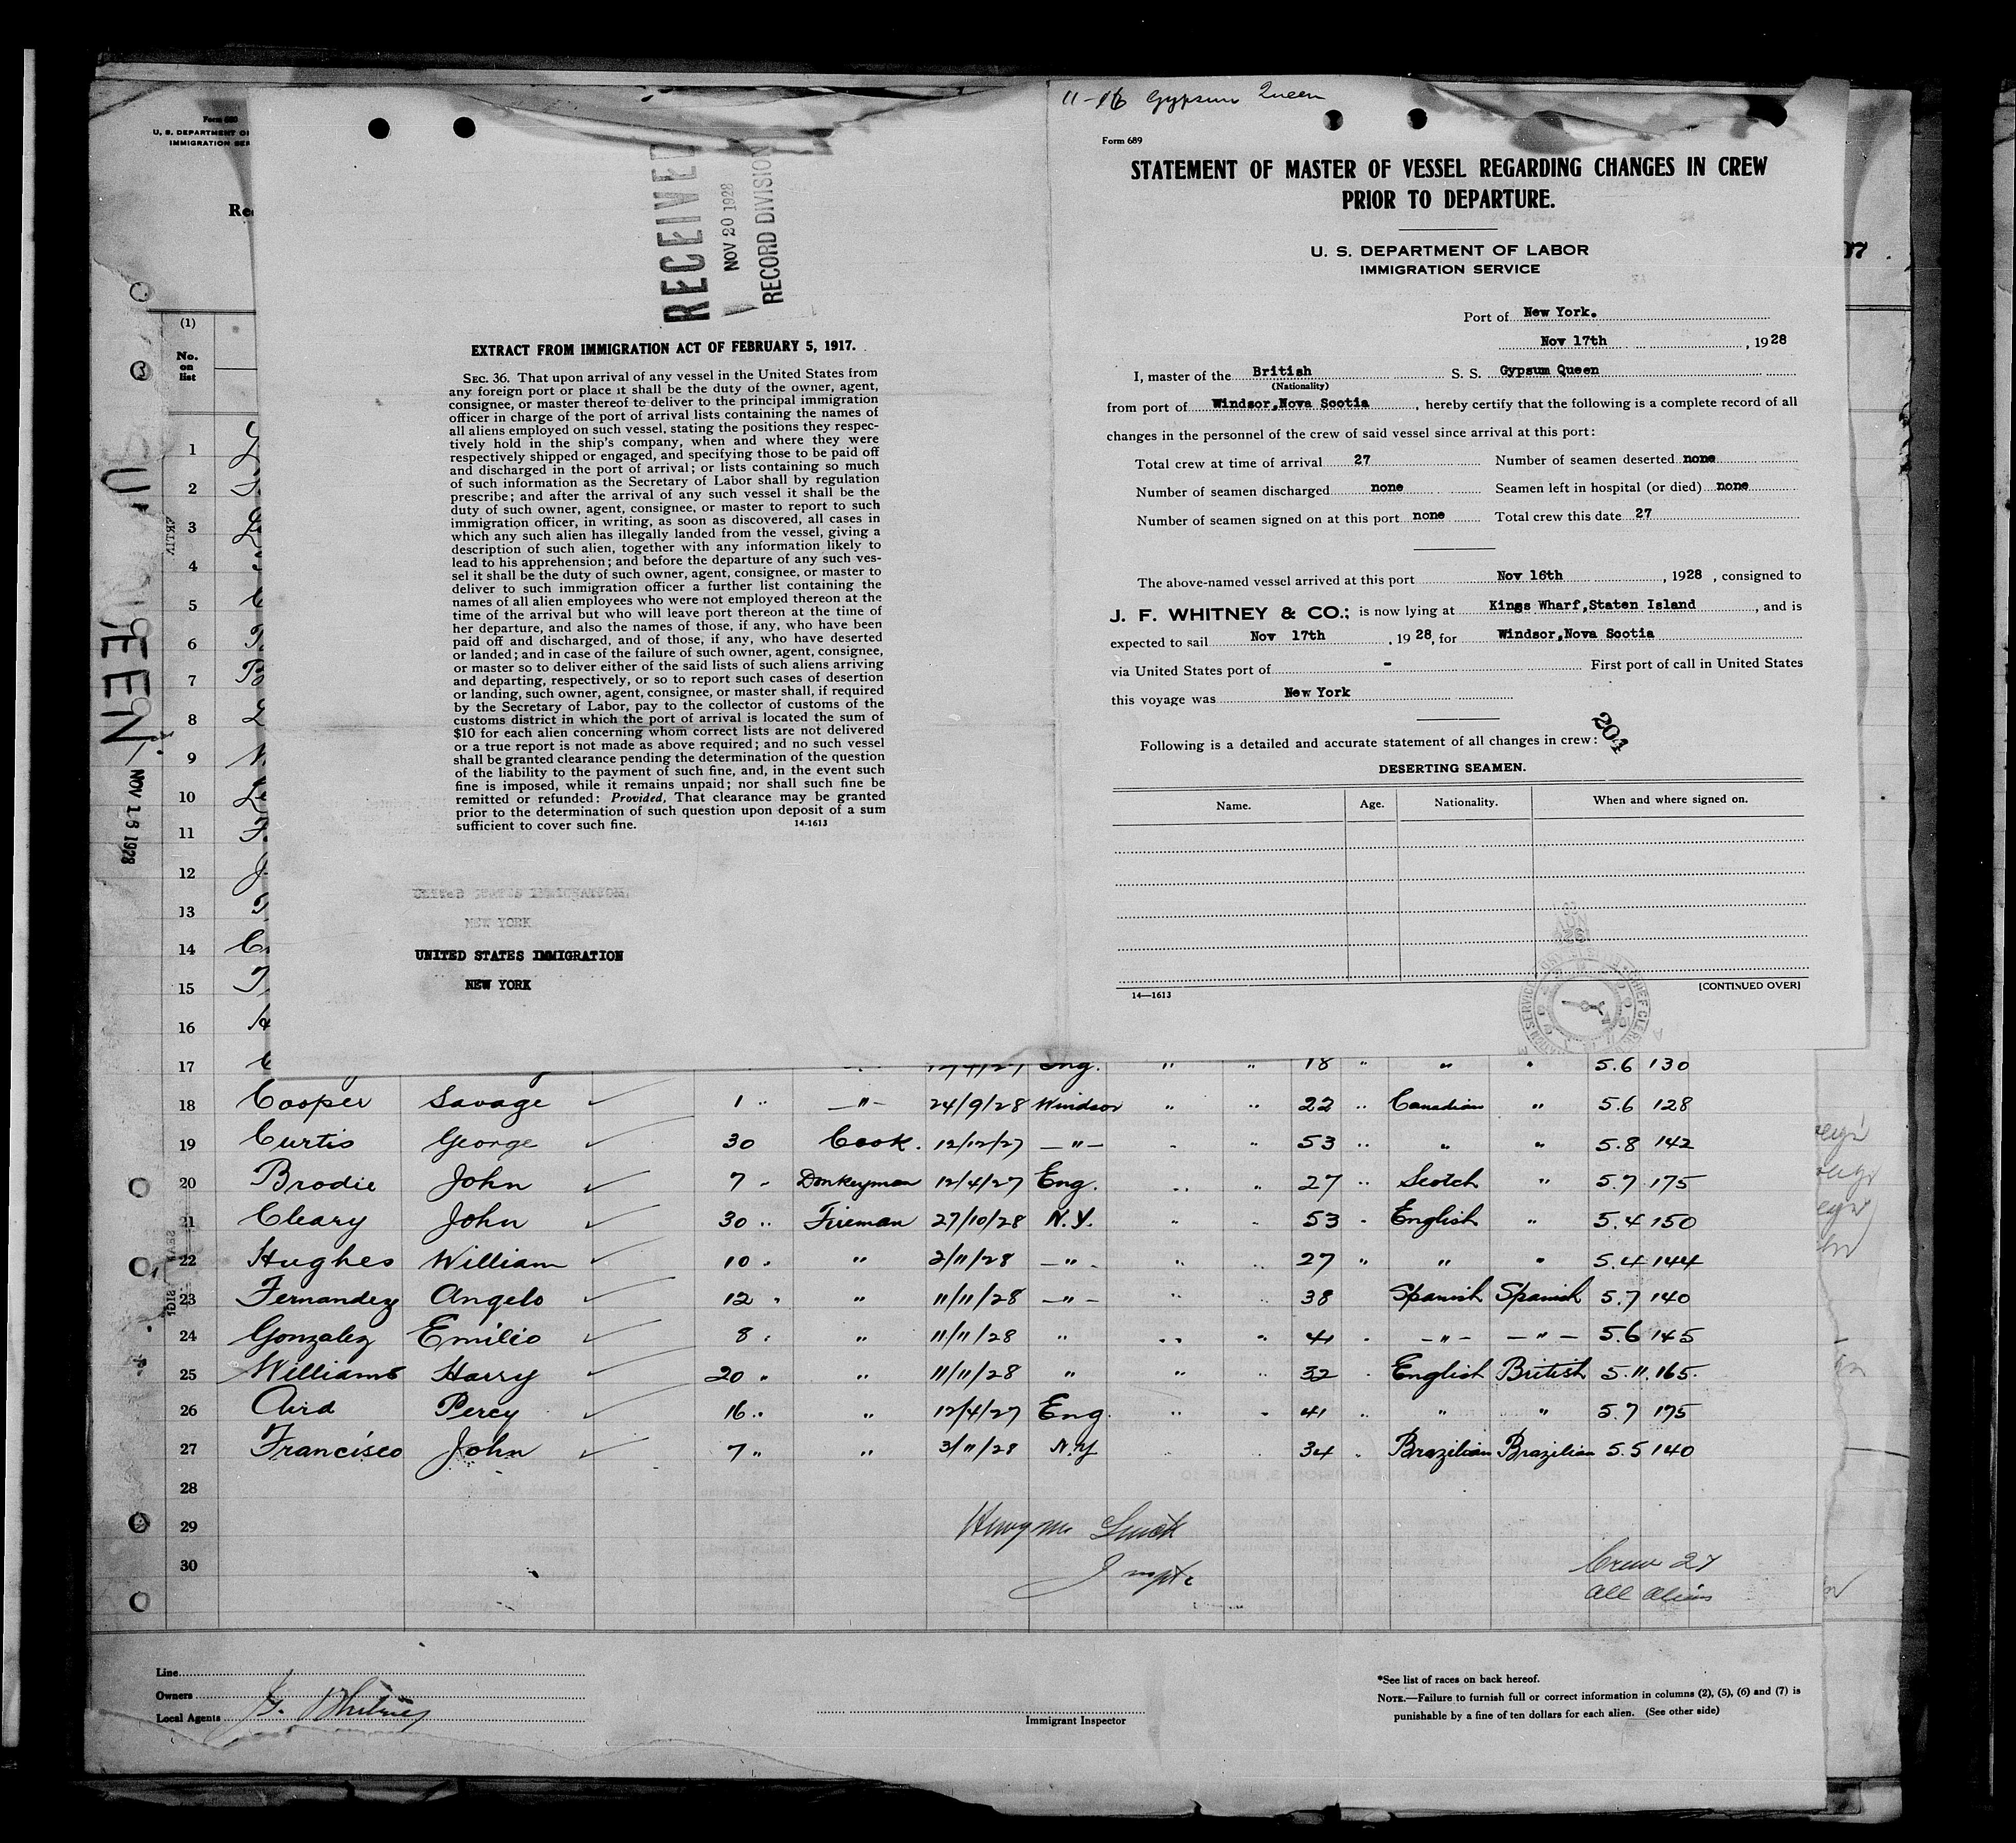 11-16 Gypsum Queen
Form 689
STATEMENT OF MASTER OF VESSEL REGARDING CHANGES IN CREW
PRIOR TO DEPARTURE.
U. S. DEPARTMENT OF LABOR
IMMIGRATION SERVICE
Port of New York.
Nov 17th, 1928
I, master of the British S. S. Gypsum Queen
(Nationality)
from port of Windsor,Nova Scotia, hereby certify that the following is a complete record of all
changes in the personnel of the crew of said vessel since arrival at this port:
Total crew at time of arrival 27 Number of seamen deserted none
Number of seamen discharged none Seamen left in hospital (or died) none
Number of seamen signed on at this port none Total crew this date 27
The above-named vessel arrived at this port Nov 16th, 1928, consigned to
J. F. WHITNEY & CO.; is now lying at Kings Wharf,Staten Island, and is
expected to sail Nov 17th, 1928, for Windsor,Nova Scotia
via United States port of - First port of call in United States
this voyage was New York
204
Following is a detailed and accurate statement of all changes in crew:
DESERTING SEAMEN.
Name. Age. Nationality. When and where signed on.
14—1613 [CONTINUED OVER]
RECEIVED
NOV 20 1928
RECORD DIVISION
EXTRACT FROM IMMIGRATION ACT OF FEBRUARY 5, 1917.
SEC. 36. That upon arrival of any vessel in the United States from
any foreign port or place it shall be the duty of the owner, agent,
consignee, or master thereof to deliver to the principal immigration
officer in charge of the port of arrival lists containing the names of
all aliens employed on such vessel, stating the positions they respec-
tively hold in the ship's company, when and where they were
respectively shipped or engaged, and specifying those to be paid off
and discharged in the port of arrival; or lists containing so much
of such information as the Secretary of Labor shall by regulation
prescribe; and after the arrival of any such vessel it shall be the
duty of such owner, agent, consignee, or master to report to such
immigration officer, in writing, as soon as discovered, all cases in
which any such alien has illegally landed from the vessel, giving a
description of such alien, together with any information likely to
lead to his apprehension; and before the departure of any such ves-
sel it shall be the duty of such owner, agent, consignee, or master to
deliver to such immigration officer a further list containing the
names of all alien employees who were not employed thereon at the
time of the arrival but who will leave port thereon at the time of
her departure, and also the names of those, if any, who have been
paid off and discharged, and of those, if any, who have deserted
or landed; and in case of the failure of such owner, agent, consignee,
or master so to deliver either of the said lists of such aliens arriving
and departing, respectively, or so to report such cases of desertion
or landing, such owner, agent, consignee, or master shall, if required
by the Secretary of Labor, pay to the collector of customs of the
customs district in which the port of arrival is located the sum of
$10 for each alien concerning whom correct lists are not delivered
or a true report is not made as above required; and no such vessel
shall be granted clearance pending the determination of the question
of the liability to the payment of such fine, and, in the event such
fine is imposed, while it remains unpaid; nor shall such fine be
remitted or refunded: Provided, That clearance may be granted
prior to the determination of such question upon deposit of a sum
sufficient to cover such fine. 14-1613
UNITED STATES IMMIGRATION
NEW YORK
UNITED STATES IMMIGRATION
NEW YORK
Form 680
U. S. DEPARTMENT OF
IMMIGRATION SER
(1)
No.
on
list
1
2
3
4
5
6
7
8
9
10
11
12
13
14
15
16
17 Eng. " " 18 " " " 5.6 130
18 Cooper Savage 1 " — " — 24/9/28 Windsor " " 22 " Canadian " 5.6 128
19 Curtis George 30 Cook. 12/12/27 — " — " " 53 " " " 5.8 142
20 Brodie John 7 " Donkeyman 12/4/27 Eng. " " 27 " Scotch " 5.7 175
21 Cleary John 30 " Fireman 27/10/28 N.Y. " " 53 " English " 5.4 150
22 Hughes William 10 " " 2/11/28 — " — " 27 " " " 5.4 144
23 Fernandez Angelo 12 " " 11/11/28 — " — " " 38 Spanish Spanish 5.7 140
24 Gonzalez Emilio 8 " " 11/11/28 " " " 41 " — " — — " — 5.6 145
25 Williams Harry 20 " " 11/11/28 " " " 32 " English British 5.11. 165.
26 Aird Percy 16 " " 12/4/27 Eng. " " 41 " " " 5.7 175
27 Francisco John 7 " " 3/11/28 N.Y " 34 " Brazilian Brazilian 5.5 140
28
29
30
Crew 27
All Aliens
NOV 16 1928
Line
Owners
Local Agents
J. F. Whitney
Immigrant Inspector
*See list of races on back hereof.
NOTE.—Failure to furnish full or correct information in columns (2), (5), (6) and (7) is
punishable by a fine of ten dollars for each alien. (See other side)